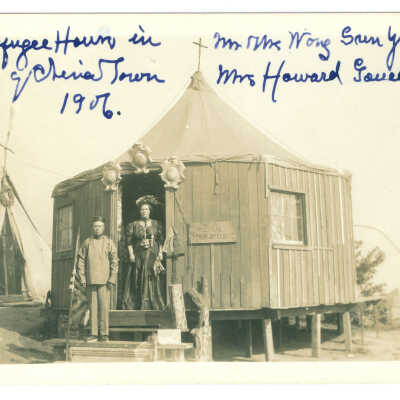 fugee House in
of China Town
1906.
Mr & Mrs Wong Sun Y
Mrs Howard